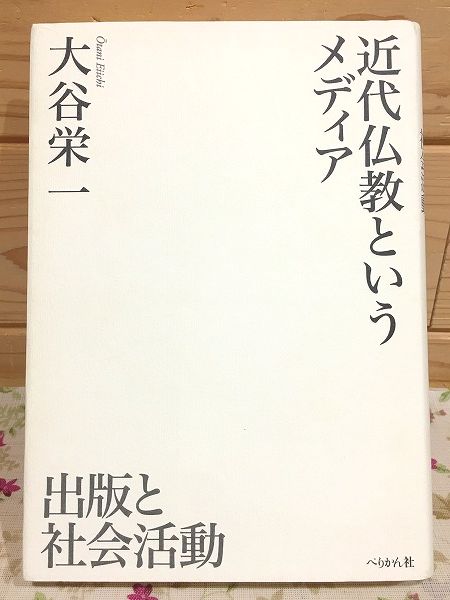 近代仏教という
メディア
大谷栄一
Ōtani Eiichi
出版と
社会活動
ぺりかん社